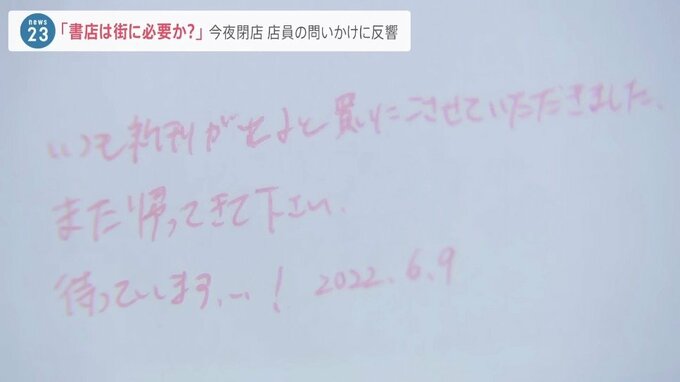 news
23
「書店は街に必要か?」今夜閉店 店員の問いかけに反響
いつも新刊がでると買いにこさせていただきました。
また帰ってきて下さい。
待っています…! 2022.6.9